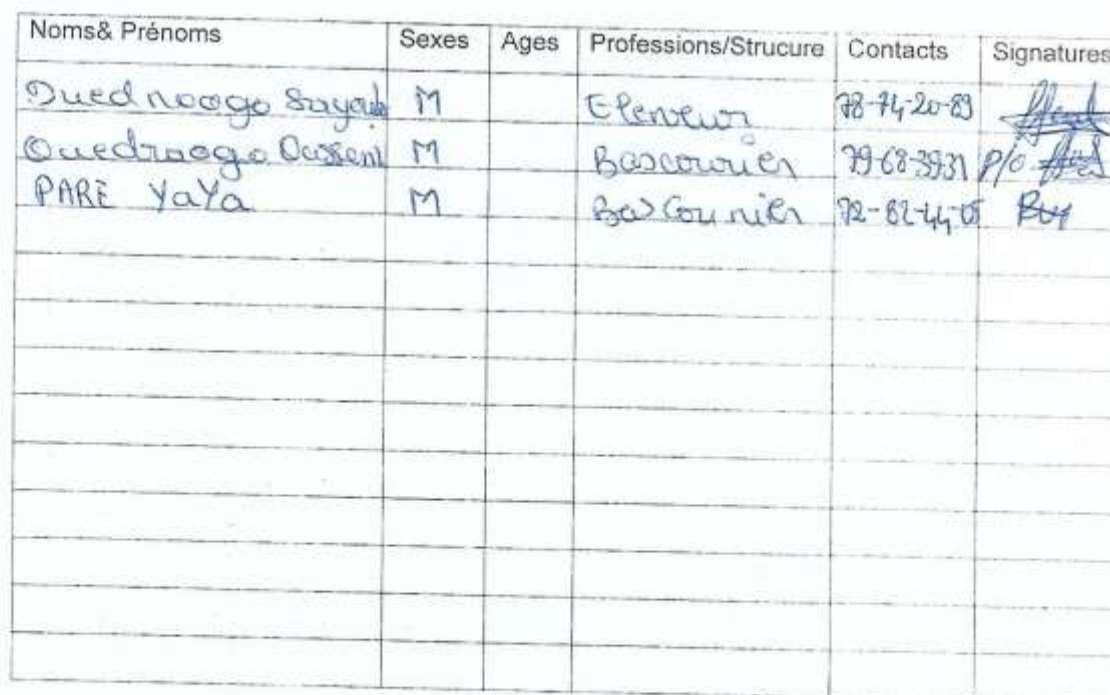 Noms& Prénoms Sexes Ages Professions/Strucure Contacts Signatures
Ouedraogo M Eleveur 78-74-20-89
Ouedraogo M Bascourier 79-68-3931 P/O
PARE YaYa M Bas Courier 72-82-44-05